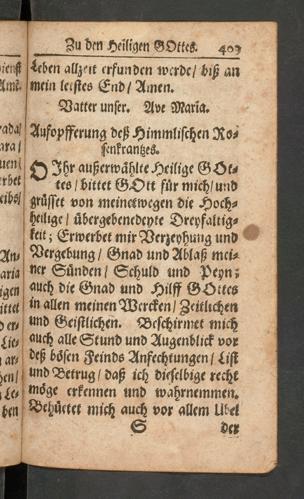 Zu den Heiligen GOttes. 403
Leben allzeit erfunden werde / biß an
mein letstes End / Amen.
Vatter unser. Ave Maria.
Aufopfferung deß Himmlischen Ro-
senkrantzes.
O Ihr außerwählte Heilige GOt-
tes / bittet GOtt für mich / und
grüsset von meinetwegen die Hoch-
heilige / übergebenedeyte Dreyfaltig-
keit; Erwerbet mir Verzeyhung und
Vergebung / Gnad und Ablaß mei-
ner Sünden / Schuld und Peyn;
auch die Gnad und Hilff GOttes
in allen meinen Wercken / Zeitlichen
und Geistlichen. Beschirmet mich
auch alle Stund und Augenblick vor
deß bösen Feinds Anfechtungen / List
und Betrug / daß ich dieselbige recht
möge erkennen und wahrnemmen.
Behüetet mich auch vor allem Übel
S der